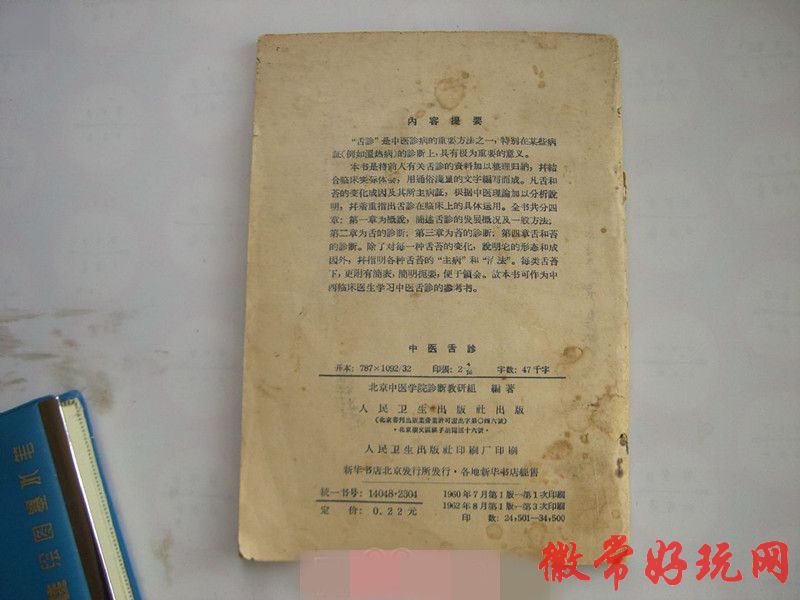 內容提要
“舌診”是中医診病的重要方法之一，特別在某些病
証(例如溫热病)的診断上，具有极为重要的意义。
本书是将前人有关舌診的資料加以整理归納，幷結
合临床实际体会，用通俗浅显的文字編写而成。凡舌和
苔的变化成因及其所主病証，根据中医理論加以分析說
明，幷着重指出舌診在临床上的具体运用。全书共分四
章：第一章为概說，簡述舌診的发展概况及一般方法；
第二章为舌的診断；第三章为苔的診断；第四章舌和苔
的診断。除了对每一种舌苔的变化，說明它的形态和成
因外，幷指明各种舌苔的“主病”和“治法”。每类舌苔
下，更附有簡表，簡明扼要，便于領会。故本书可作为中
西临床医生学习中医舌診的参考书。
中医舌診
开本：787×1092/32 印張：2 4/16 字数：47千字
北京中医学院診断教研組 編著
人民卫生出版社出版
(北京書刊出版業营業許可証出字第〇四六號)
·北京崇文區綫子胡同三十六號·
人民卫生出版社印刷厂印刷
新华书店北京发行所发行·各地新华书店經售
統一书号：14048·2304
定价：0.22元
1960年7月第1版—第1次印刷
1962年8月第1版—第3次印刷
印数：24,501—34,500
绘图墨水笔
徽常好玩网